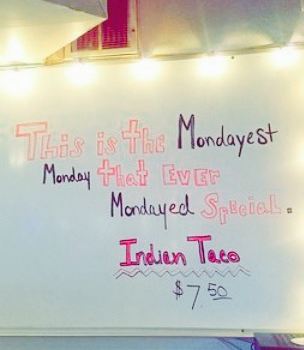 This is the Mondayest
Monday that Ever
Mondayed Special.
Indian Taco
$7.50